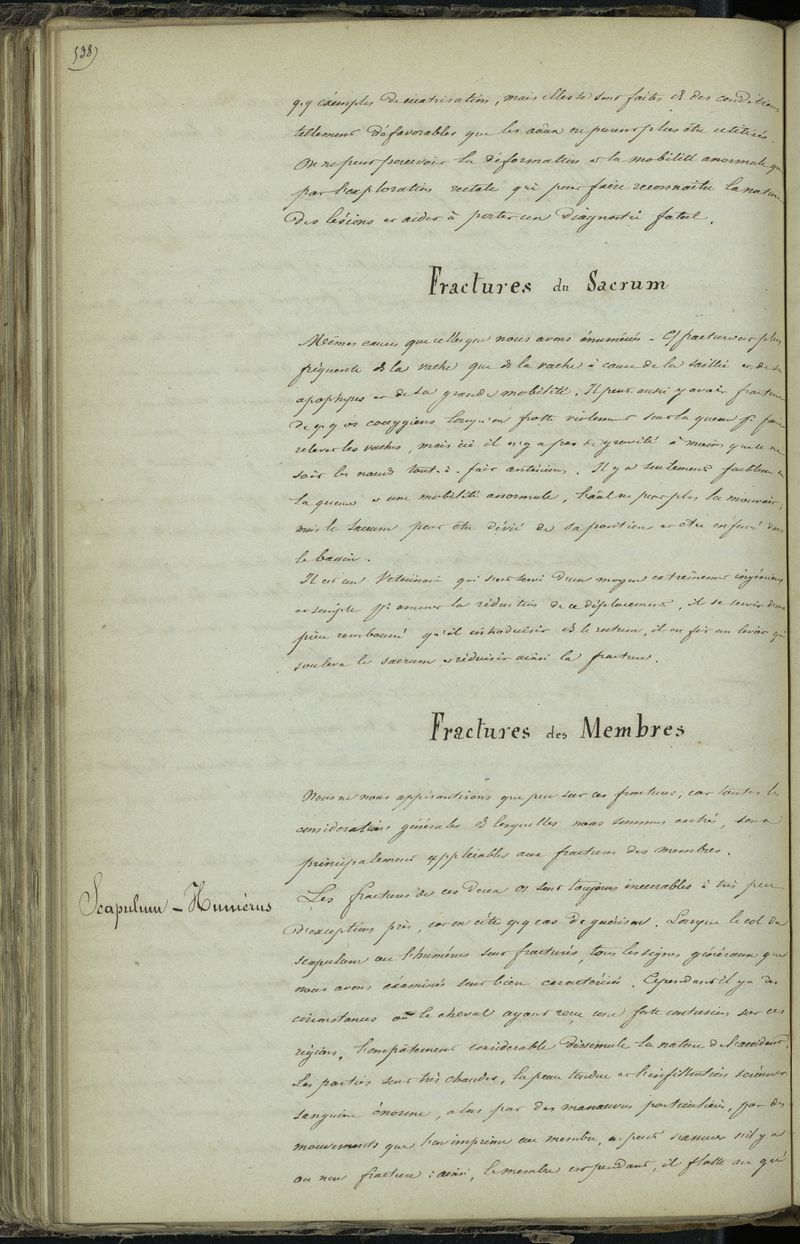 538)
q.q exemples de cicatrisation, mais elles se sont faites ds des conditions
tellement défavorables que les aâux ne peuvent plus être utilisés.
On ne peut percevoir la déformation et la mobilité anormale que
par l'exploration rectale qui peut faire reconnaître la nature
des lésions et aider à porter un diagnostic fatal.
Fractures du Sacrum
Mêmes causes que celles que nous avons énumérées - Cette fracture est plus
fréquente ds la vache que ds la vache à cause de la saillie et de ses
apophyses et de sa grande mobilité. Il peut aussi y avoir fracture
de q.q os coccygiens lorsqu'on frotte violemment sur la queue pr faire
relever les vaches, mais ici il n'y a pas de gravité à moins que ce ne
soit les nœuds tout-à-fait antérieurs. Il y a seulement
la queue et une mobilité anormale, l'aâl ne peut plus la mouvoir;
mais le sacrum peut être dévié de sa position et être enfoncé dans
le bassin.
Il est un Vétérinaire qui s'est servi d'un moyen extrêmement ingénieux
et simple pr amener la réduction de ce déplacement, il se servit d'un
pieu rembourré qu'il introduisit ds le rectum, il en fit un levier qui
souleva le sacrum et réduisit ainsi la fracture.
Fractures des Membres
Nous ne nous appésantirons que peu sur ces fractures, car toutes les
considérations générales ds lesquelles nous sommes entrés, sont
principalement applicables aux fractures des membres.
Scapulum - Humérus
Les fractures de ces deux os sont toujours incurables à très peu
d'exceptions près, car on cite q.q cas de guérison. Lorsque le col du
scapulum ou l'humérus sont fracturés, tous les signes généraux que
nous avons examinés sont bien caractérisés. Cependant il y a des
circonstances où le cheval ayant reçu une forte contusion sur ces
régions, l'empâtement considérable dissimule la nature de l'accident.
Les parties sont très chaudes, la peau tendue et l'infiltration
sanguine énorme, alors par des manœuvres particulières, par des
mouvements que l'on imprime au membre, on peut s'assurer s'il y a
ou non fracture : ainsi, le membre est pendant, il flotte au gré